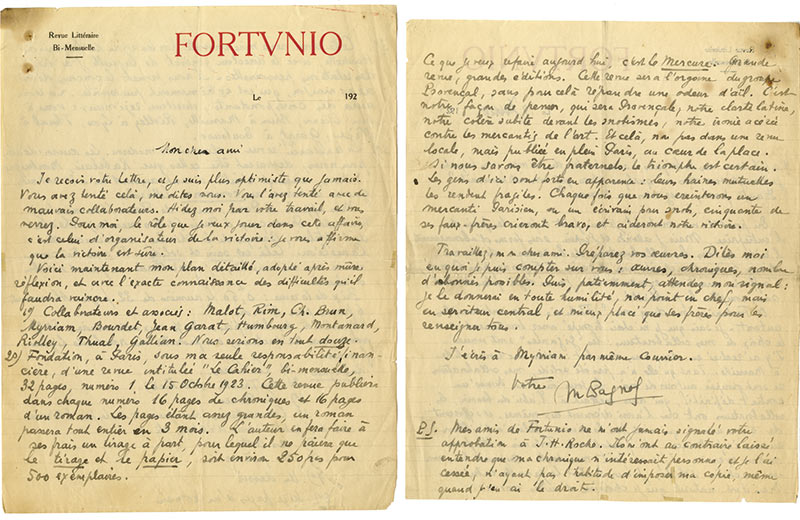 Revue Littéraire
Bi-Mensuelle
FORTVNIO
Le 192
Mon cher ami
Je reçois votre lettre, et je suis plus optimiste que jamais.
Vous avez tenté celà, me dites vous. Vous l'avez tenté avec de
mauvais collaborateurs. Aidez moi par votre travail, et vous
verrez. Pour moi, le rôle que je veux jouer dans cette affaire,
c'est celui d'organisateur de la victoire : je vous affirme
que la victoire est sûre.
Voici maintenant mon plan détaillé, adopté après mûre
réflexion, et avec l'exacte connaissance des difficultés qu'il
faudra vaincre.
1º) Collaborateurs et associés : Malot, Rim, Ch. Brun,
Myriam, Bourdet, Jean Garat, Humbourg, Montanard,
Riolley, Thual, Gallian. Nous serions en tout douze.
2º) Fondation, à Paris, sous ma seule responsabilité finan-
cière, d'une revue intitulée "Le Cahier", bi-mensuelle,
32 pages, numéro 1, le 15 Octobre 1923. Cette revue publiera
dans chaque numéro 16 pages de chroniques et 16 pages
d'un roman. Les pages étant assez grandes, un roman
passera tout entier en 3 mois. L'auteur en fera faire à
ses frais un tirage à part, pour lequel il ne paiera que
le tirage et le papier, soit environ 250 frs pour
500 exemplaires.
Ce que je veux refaire aujourd'hui, c'est le Mercure. Grande
revue, grandes éditions. Cette revue sera l'organe du groupe
Provençal, sans pour celà répandre une odeur d'ail. C'est
notre façon de penser, qui sera Provençale, notre clarté latine,
notre colère subite devant les snobismes, notre ironie acérée
contre les mercantis de l'art. Et celà, non pas dans une revue
locale, mais publiée en plein Paris, au cœur de la place.
Si nous savons être fraternels, le triomphe est certain.
Les gens d'ici sont forts en apparence : leurs haines mutuelles
les rendent fragiles. Chaque fois que nous éreinterons un
mercanti Parisien, ou un écrivain pour snob, cinquante de
ses faux-frères crieront bravo, et aideront notre victoire.
Travaillez, mon cher ami. Préparez vos œuvres. Dites moi
en quoi je puis compter sur vous : œuvres, chroniques, nombre
d'abonnés possibles. Puis, patiemment, attendez mon signal :
je le donnerai en toute humilité, non point en chef, mais
en serviteur central, et mieux placé que ses frères pour les
renseigner tous.
J'écris à Myriam par même courrier.
Votre
M Pagnol
P.S. Mes amis de Fortunio ne m'ont jamais signalé votre
approbation à J.H. Roche. Ils m'ont au contraire laissé
entendre que ma chronique n'intéressait personne, et je l'ai
cessée, n'ayant pas l'habitude d'imposer ma copie, même
quand j'en ai le droit.